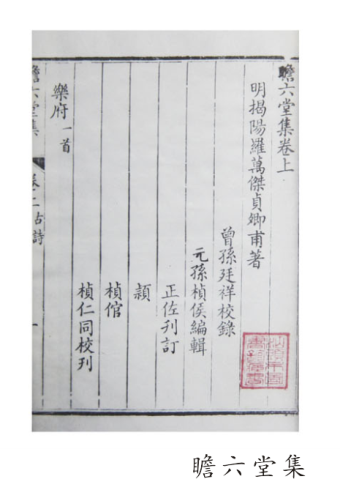 瞻六堂集卷上
明揭陽羅萬傑貞卿甫著
曾孫廷祥校錄
元孫楨侯編輯
正佐刋訂
頴
楨倌
楨仁同校列
樂府一首
瞻六堂集
卷一
古詩
一
瞻六堂集